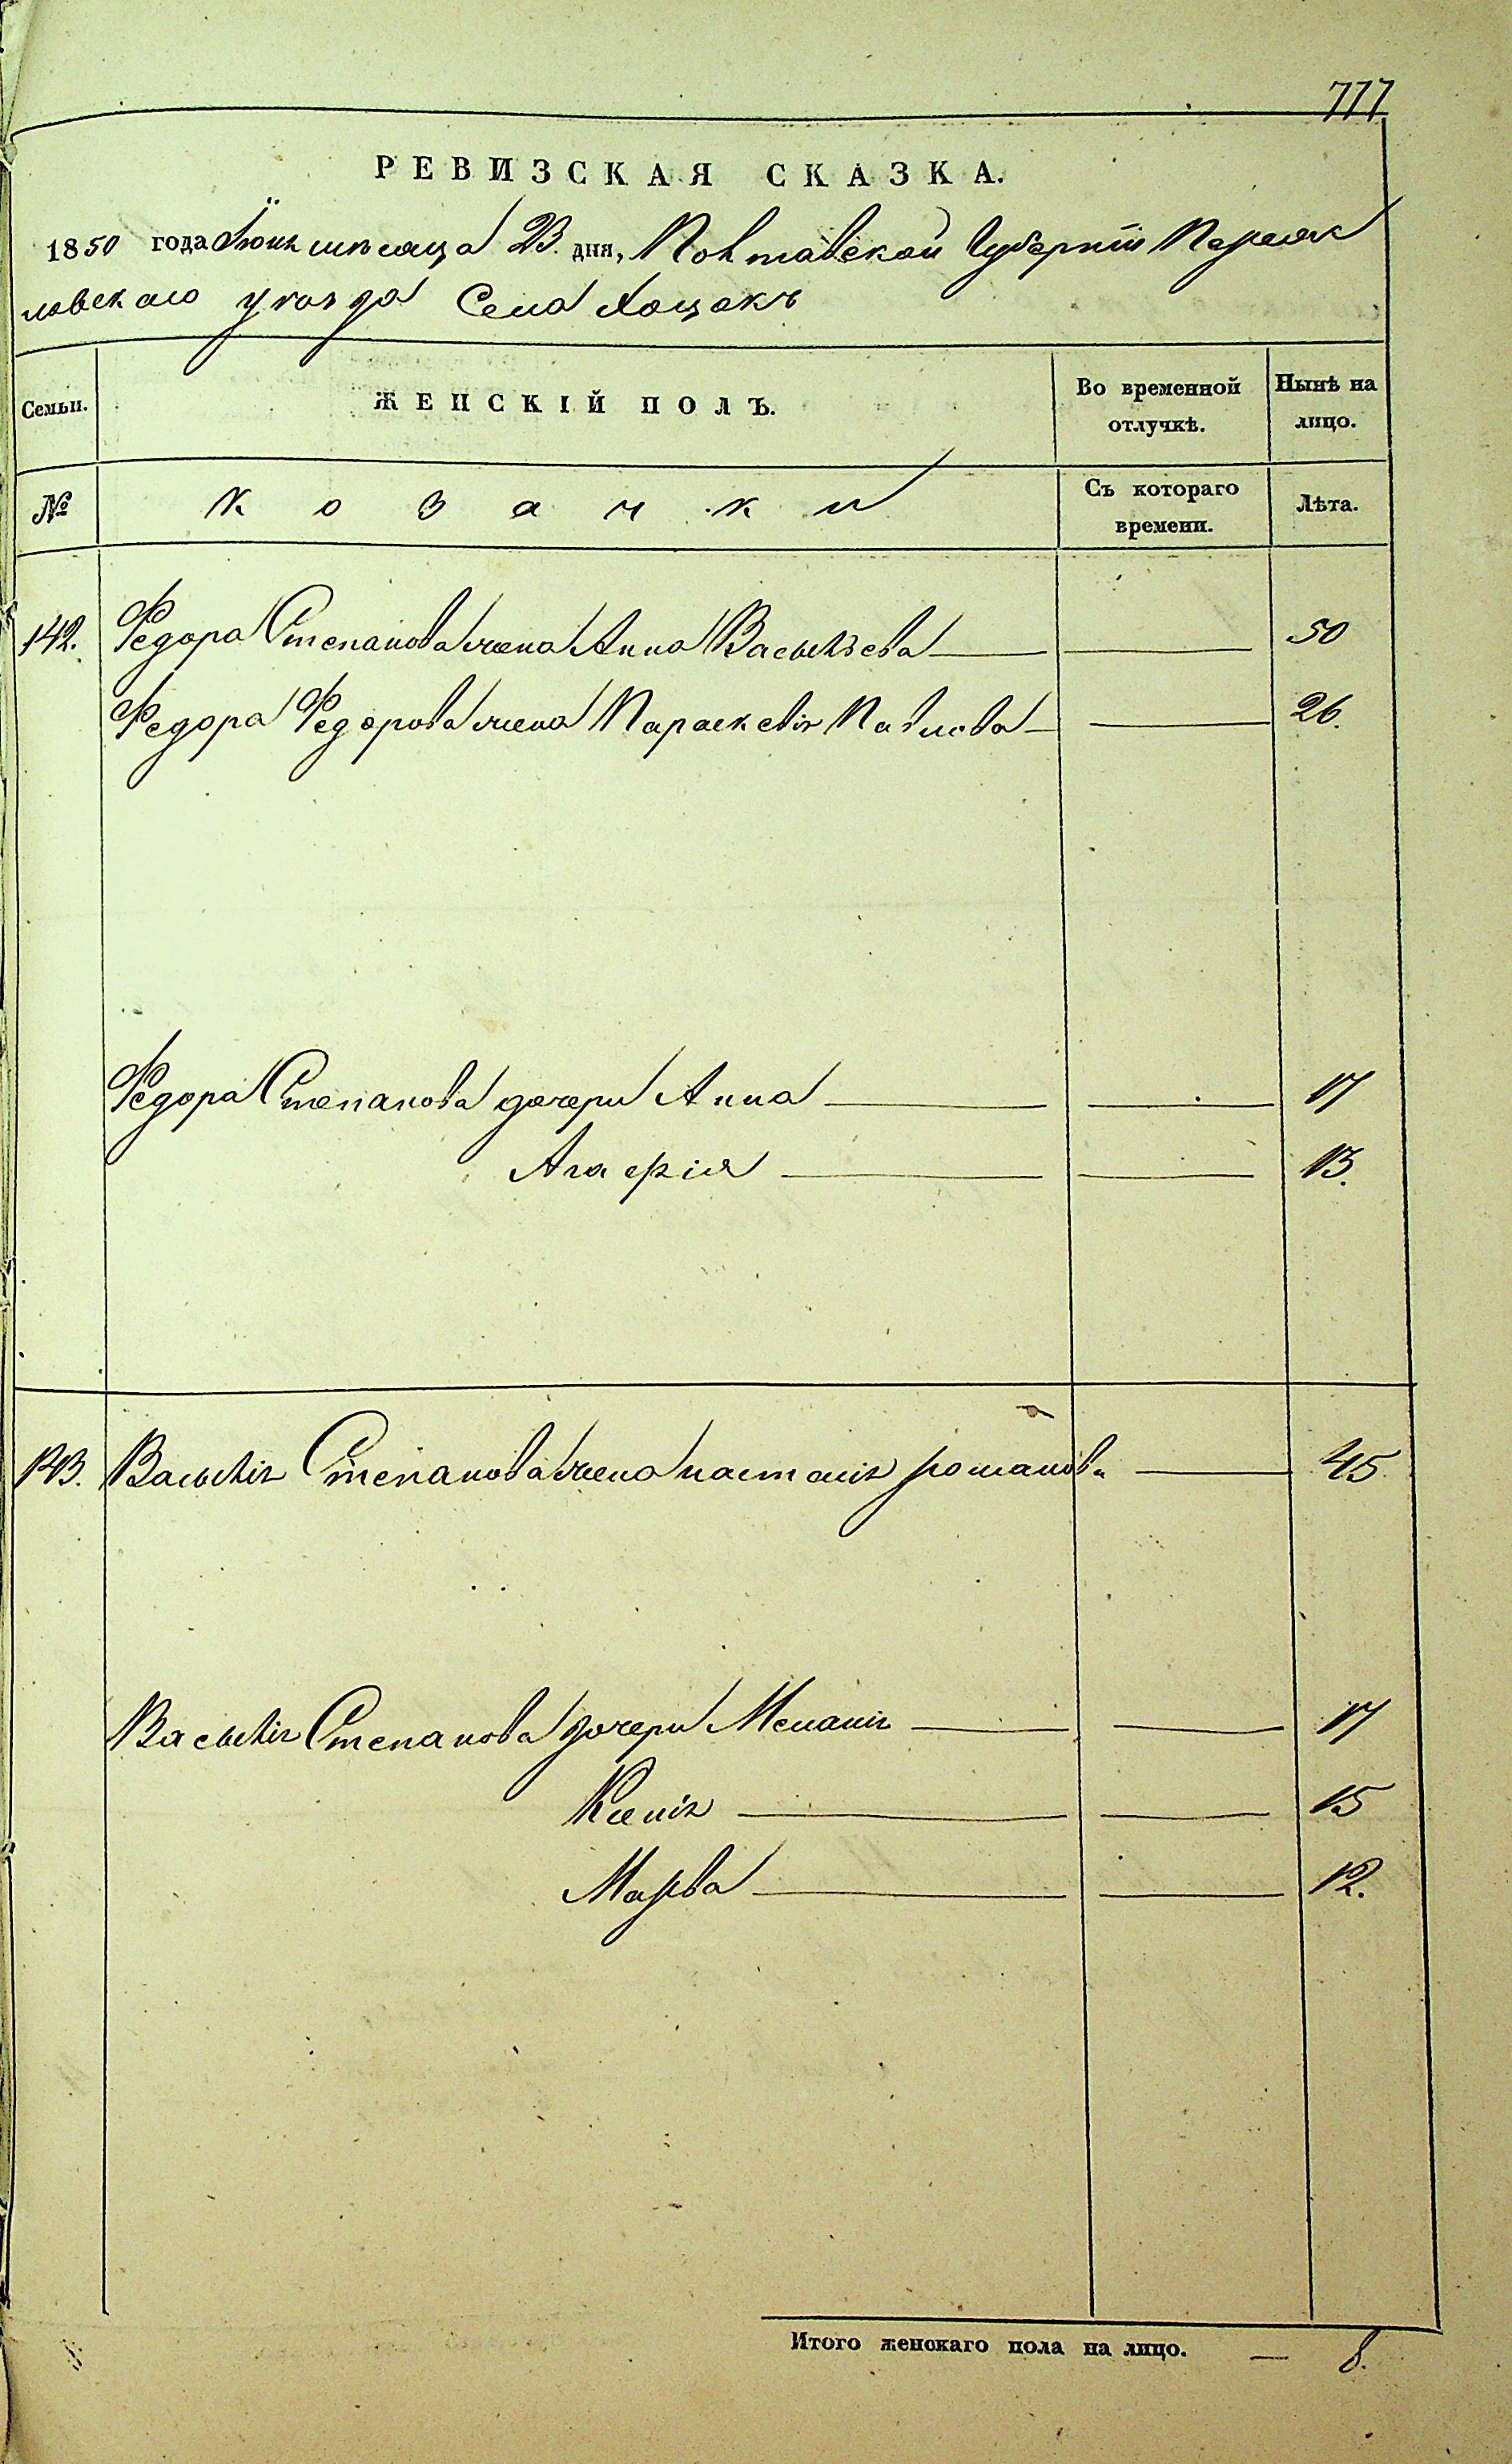 777
РЕВИЗСКАЯ СКАЗКА.
1850 года Июня месяца 23. дня, Полтавской Губернiи Переяс
ловскаго уезда Села Хоцокъ
Семьи.
ЖЕНСКІЙ ПОЛЪ.
Во временной отлучкѣ.
Нынѣ на лицо.
№
козачки
Съ котораго времени.
Лѣта.
142. Федора Степанова жена Анна Васильева 50
Федора Федорова жена Параскевія Павлова 26.
Федора Степанова дочери Анна 17
Агафія 13.
143. Василія Степанова жена настасія романова 45
Василія Степанова дочери Меланія 17
Ксенія 15
Марфа 12.
Итого женскаго пола на лицо. — 8.